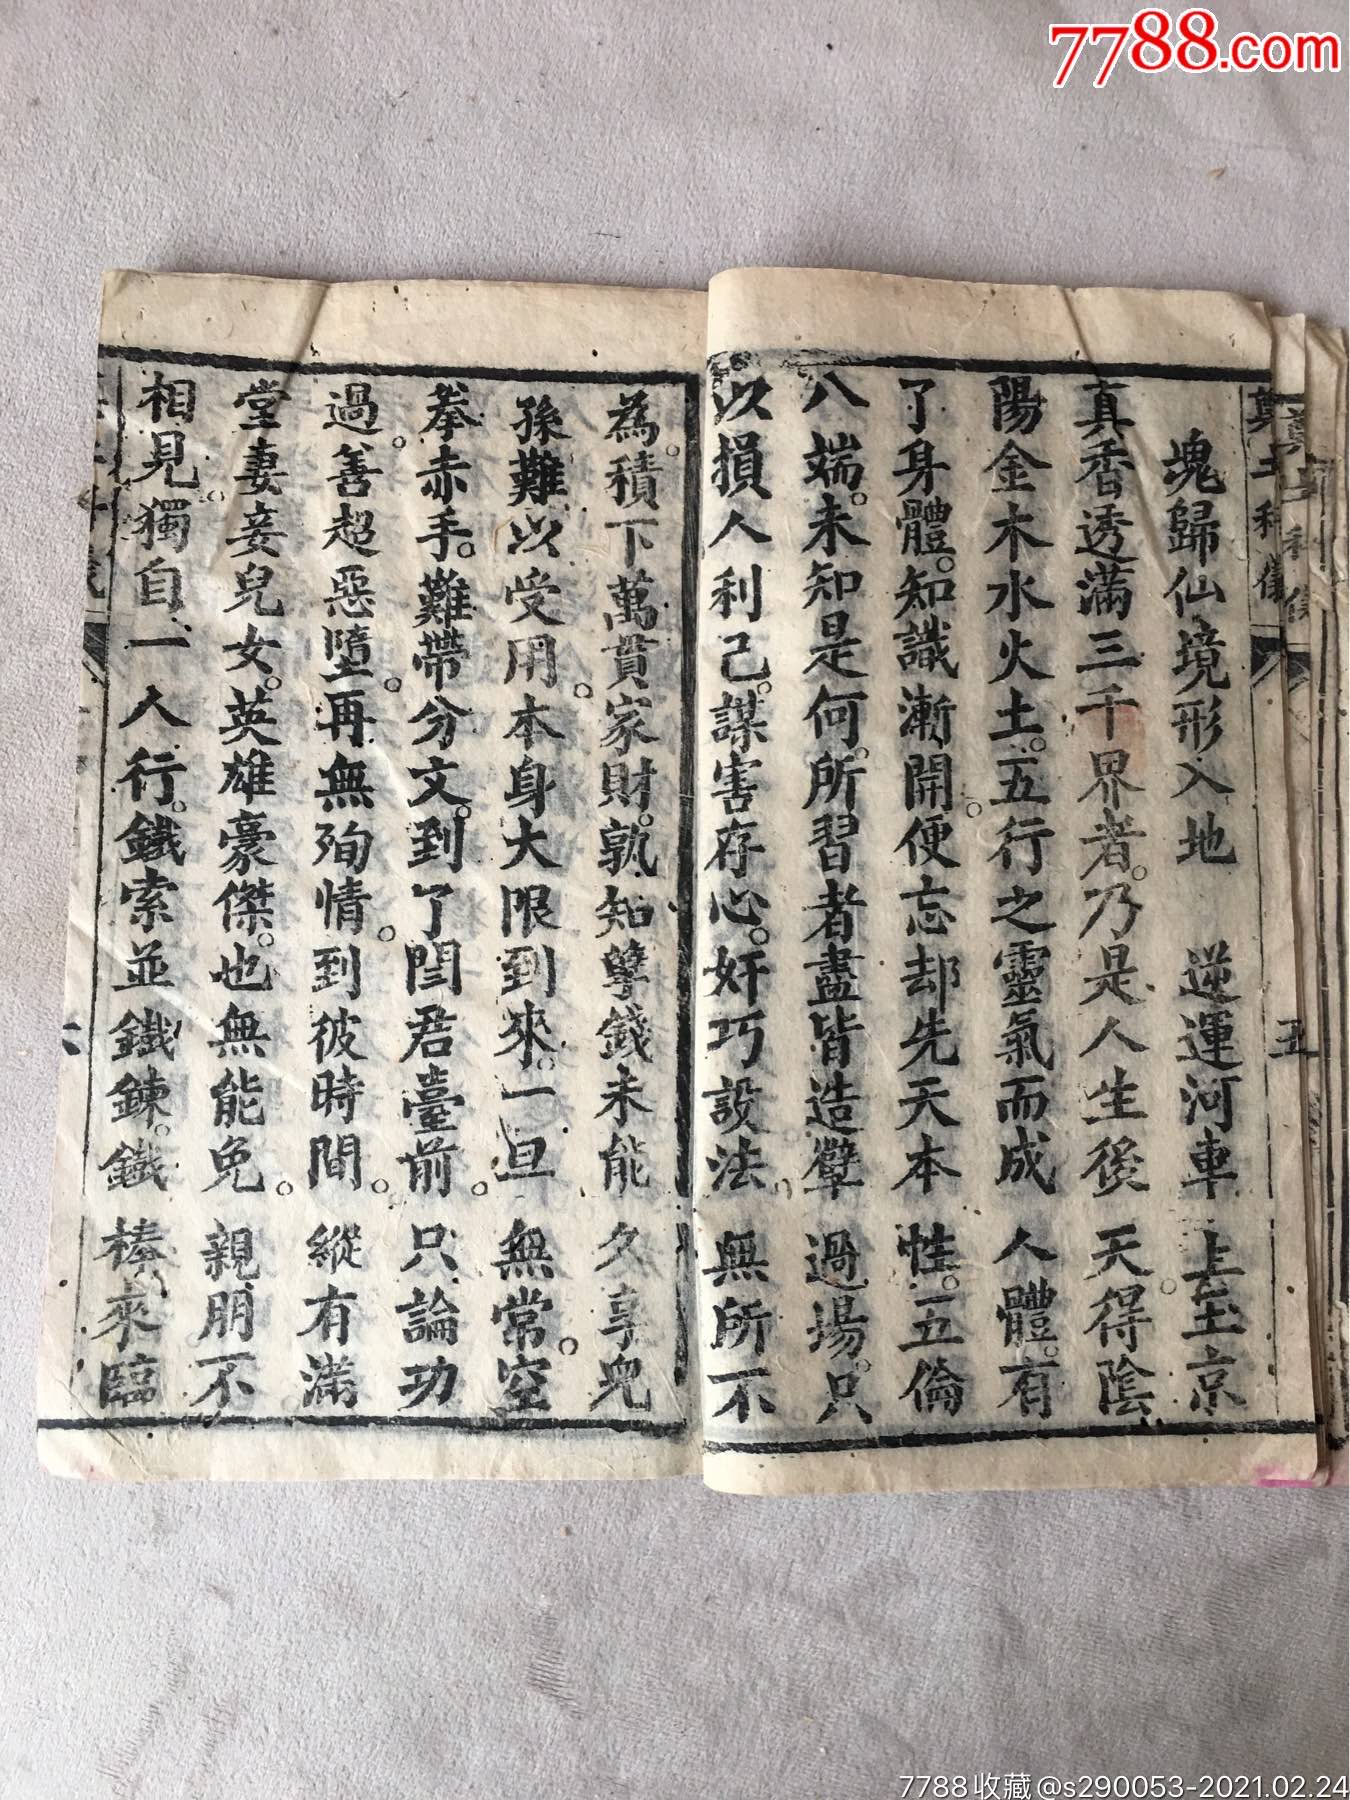 7788.com
真科儀
五
魂歸仙境形入地　逆運河車上玉京
真香透滿三千界者。乃是人生後天。得陰
陽金木水火土。五行之靈氣而成人體。有
了身體。知識漸開。便忘却先天本性。五倫
八端。未知是何。所習者盡皆造孽過場。只
以損人利己。謀害存心。奸巧設法。無所不
為。積下萬貫家財。孰知孽錢未能久享兒
孫難以受用。本身大限到來。一旦無常。空
拳赤手。難帶分文。到了閻君臺前。只論功
過。善超惡墮。再無殉情。到彼時間。縱有滿
堂妻妾兒女。英雄豪傑。也無能免。親朋不
相見。獨自一人行。鐵索並鐵鍊。鐵棒來臨
六
7788收藏@s290053-2021.02.24